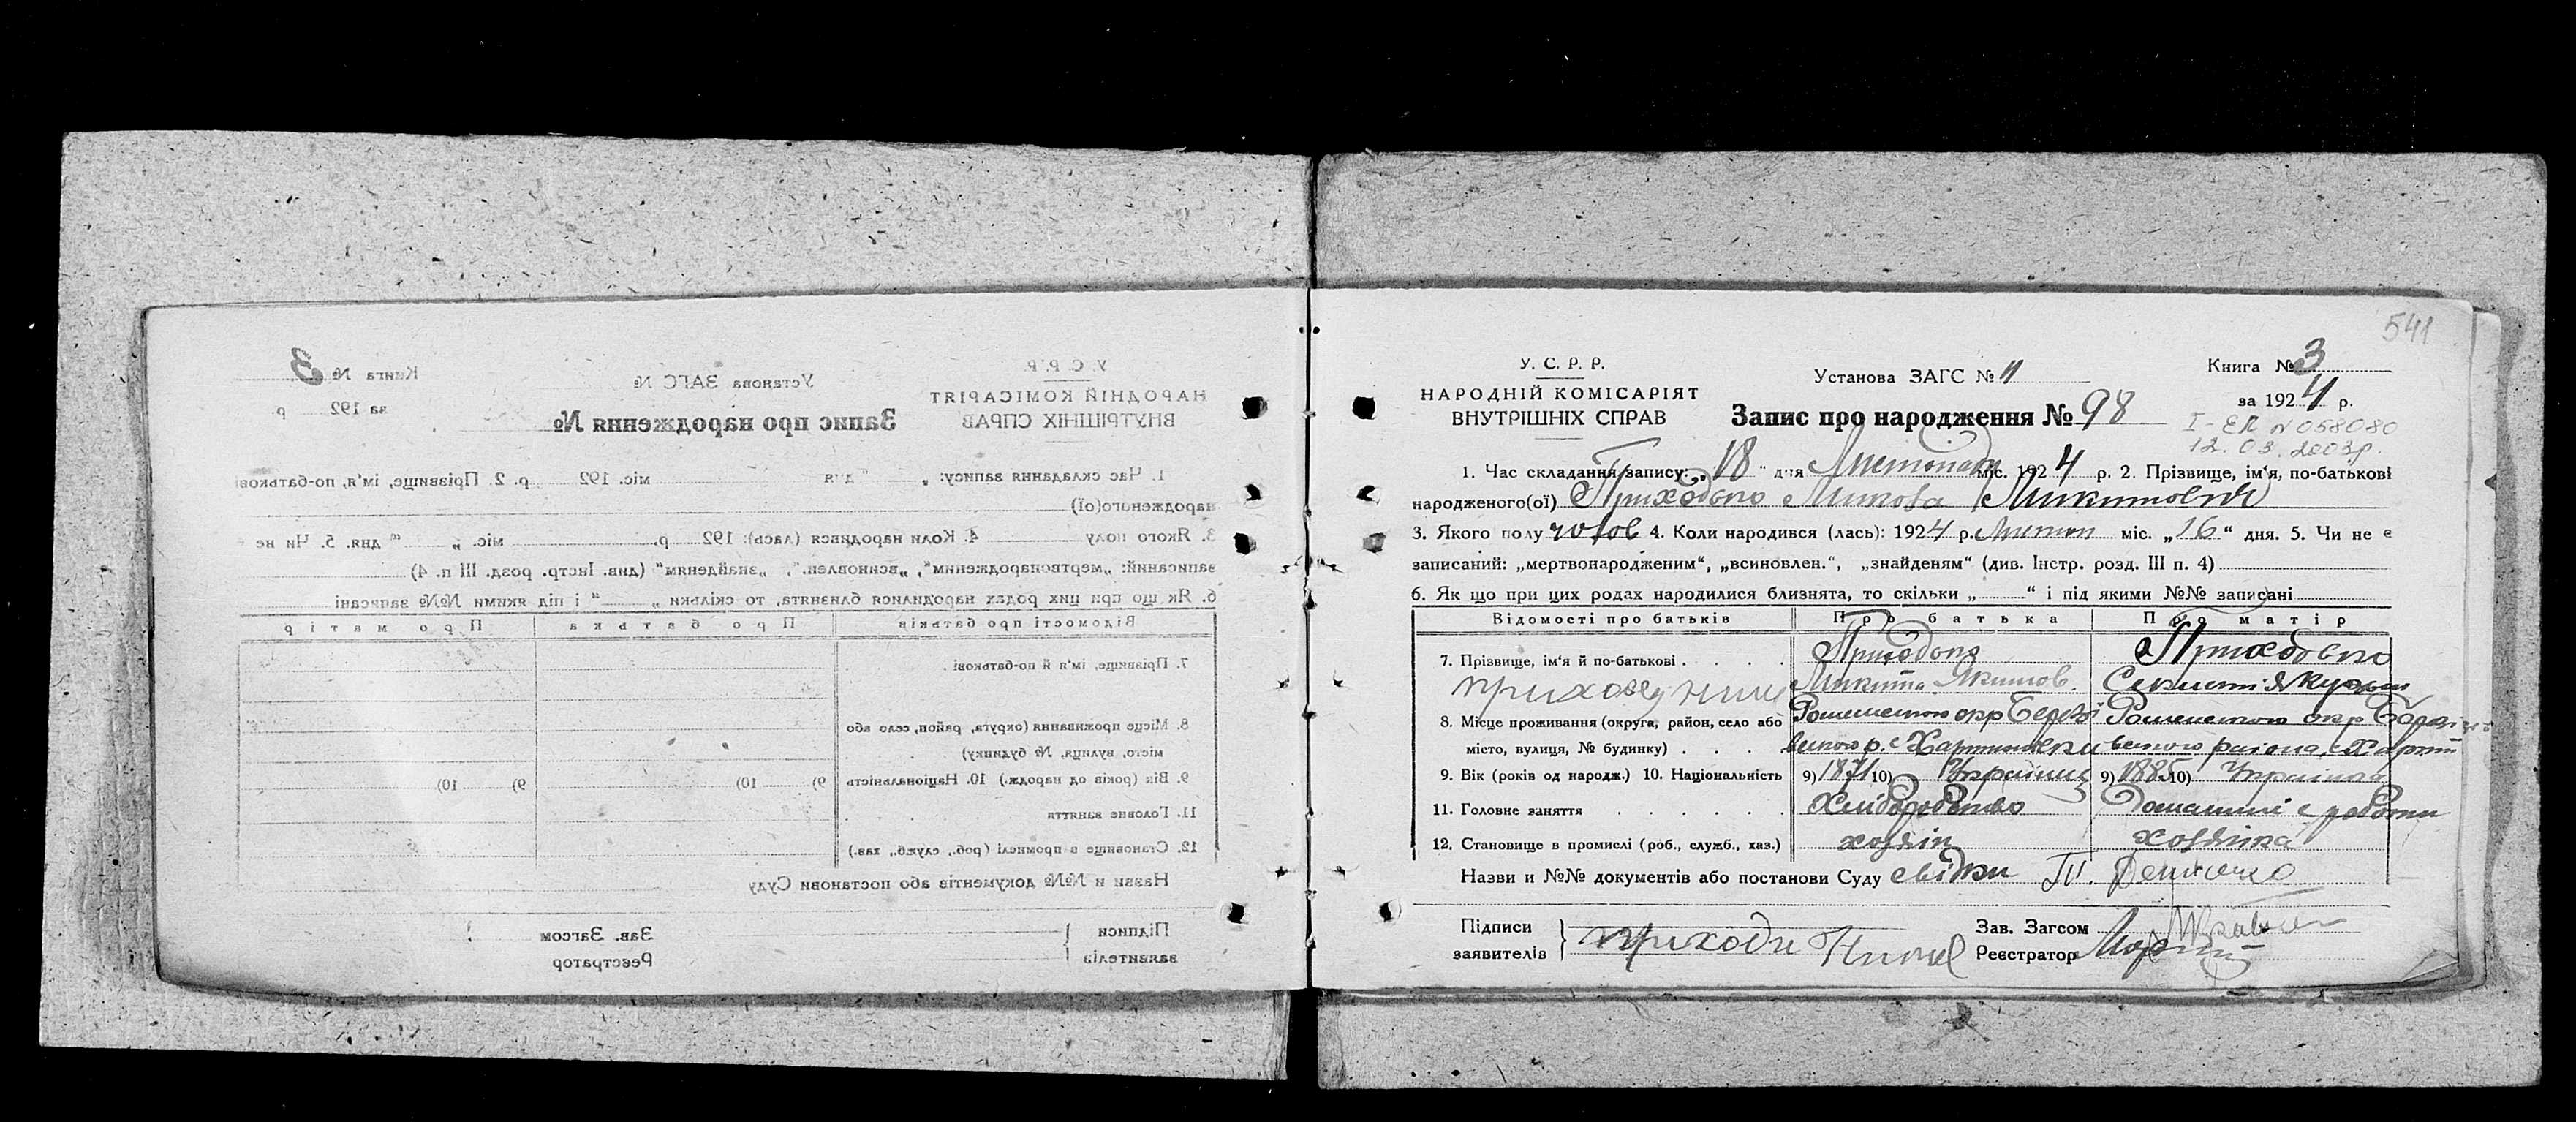 541
У. С. Р. Р.
НАРОДНІЙ КОМІСАРІЯТ
ВНУТРІШНІХ СПРАВ
Установа ЗАГС № 11
Запис про народження № 98
Книга № 3
за 1924 р.
І-ЕЛ № 058080
12.03.2003р.
1. Час складання запису: „18“ дня Листопада міс. 1924 р. 2. Прізвище, ім'я, по-батькові
народженого(ої) Приходько Микитович
3. Якого полу чолов 4. Коли народився (лась): 1924 р. Листоп міс. „16“ дня. 5. Чи не є
записаний: „мертвонародженим“, „всиновлен.“, „знайденям“ (див. Інстр. розд. III п. 4)
6. Як що при цих родах народилися близнята, то скільки „ “ і під якими №№ записані
Відомості про батьків Про батька Про матір
7. Прізвище, ім'я й по-батькові . . . . Приходько Приходько
Микита Якимов.
8. Місце проживання (округа, район, село або Роменською окр Роменською окр
місто, вулиця, № будинку) . . . . р. с району, с
9. Вік (років од народж.) 10. Національність 9) 1871 10) Українец 9) 1885 10) Українка
11. Головне заняття . . . . . . Хліборобство Домашні є роботи
12. Становище в промислі (роб., служб., хаз.) хозяін хозяінка
Назви и №№ документів або постанови Суду свідки
Підписи
заявителів
приходи
Зав. Загсом
Реєстратор
У. С. Р. Р.
НАРОДНІЙ КОМІСАРІЯТ
ВНУТРІШНІХ СПРАВ
Установа ЗАГС №
Запис про народження №
Книга № 3
за 192 р
1. Час складання запису: „ “ дня міс. 192 р. 2. Прізвище, ім'я, по-батькові
народженого(ої)
3. Якого полу 4. Коли народився (лась): 192 р. міс. „ “ дня. 5. Чи не є
записаний: „мертвонародженим“, „всиновлен.“, „знайденям“ (див. Інстр. розд. III п. 4)
6. Як що при цих родах народилися близнята, то скільки „ “ і під якими №№ записані
Відомості про батьків Про батька Про матір
7. Прізвище, ім'я й по-батькові .
8. Місце проживання (округа, район, село або
місто, вулиця, № будинку)
9. Вік (років од народж.) 10. Національність 9) 10) 9) 10)
11. Головне заняття
12. Становище в промислі (роб., служб., хаз.)
Назви и №№ документів або постанови Суду
Підписи
заявителів
Зав. Загсом
Реєстратор